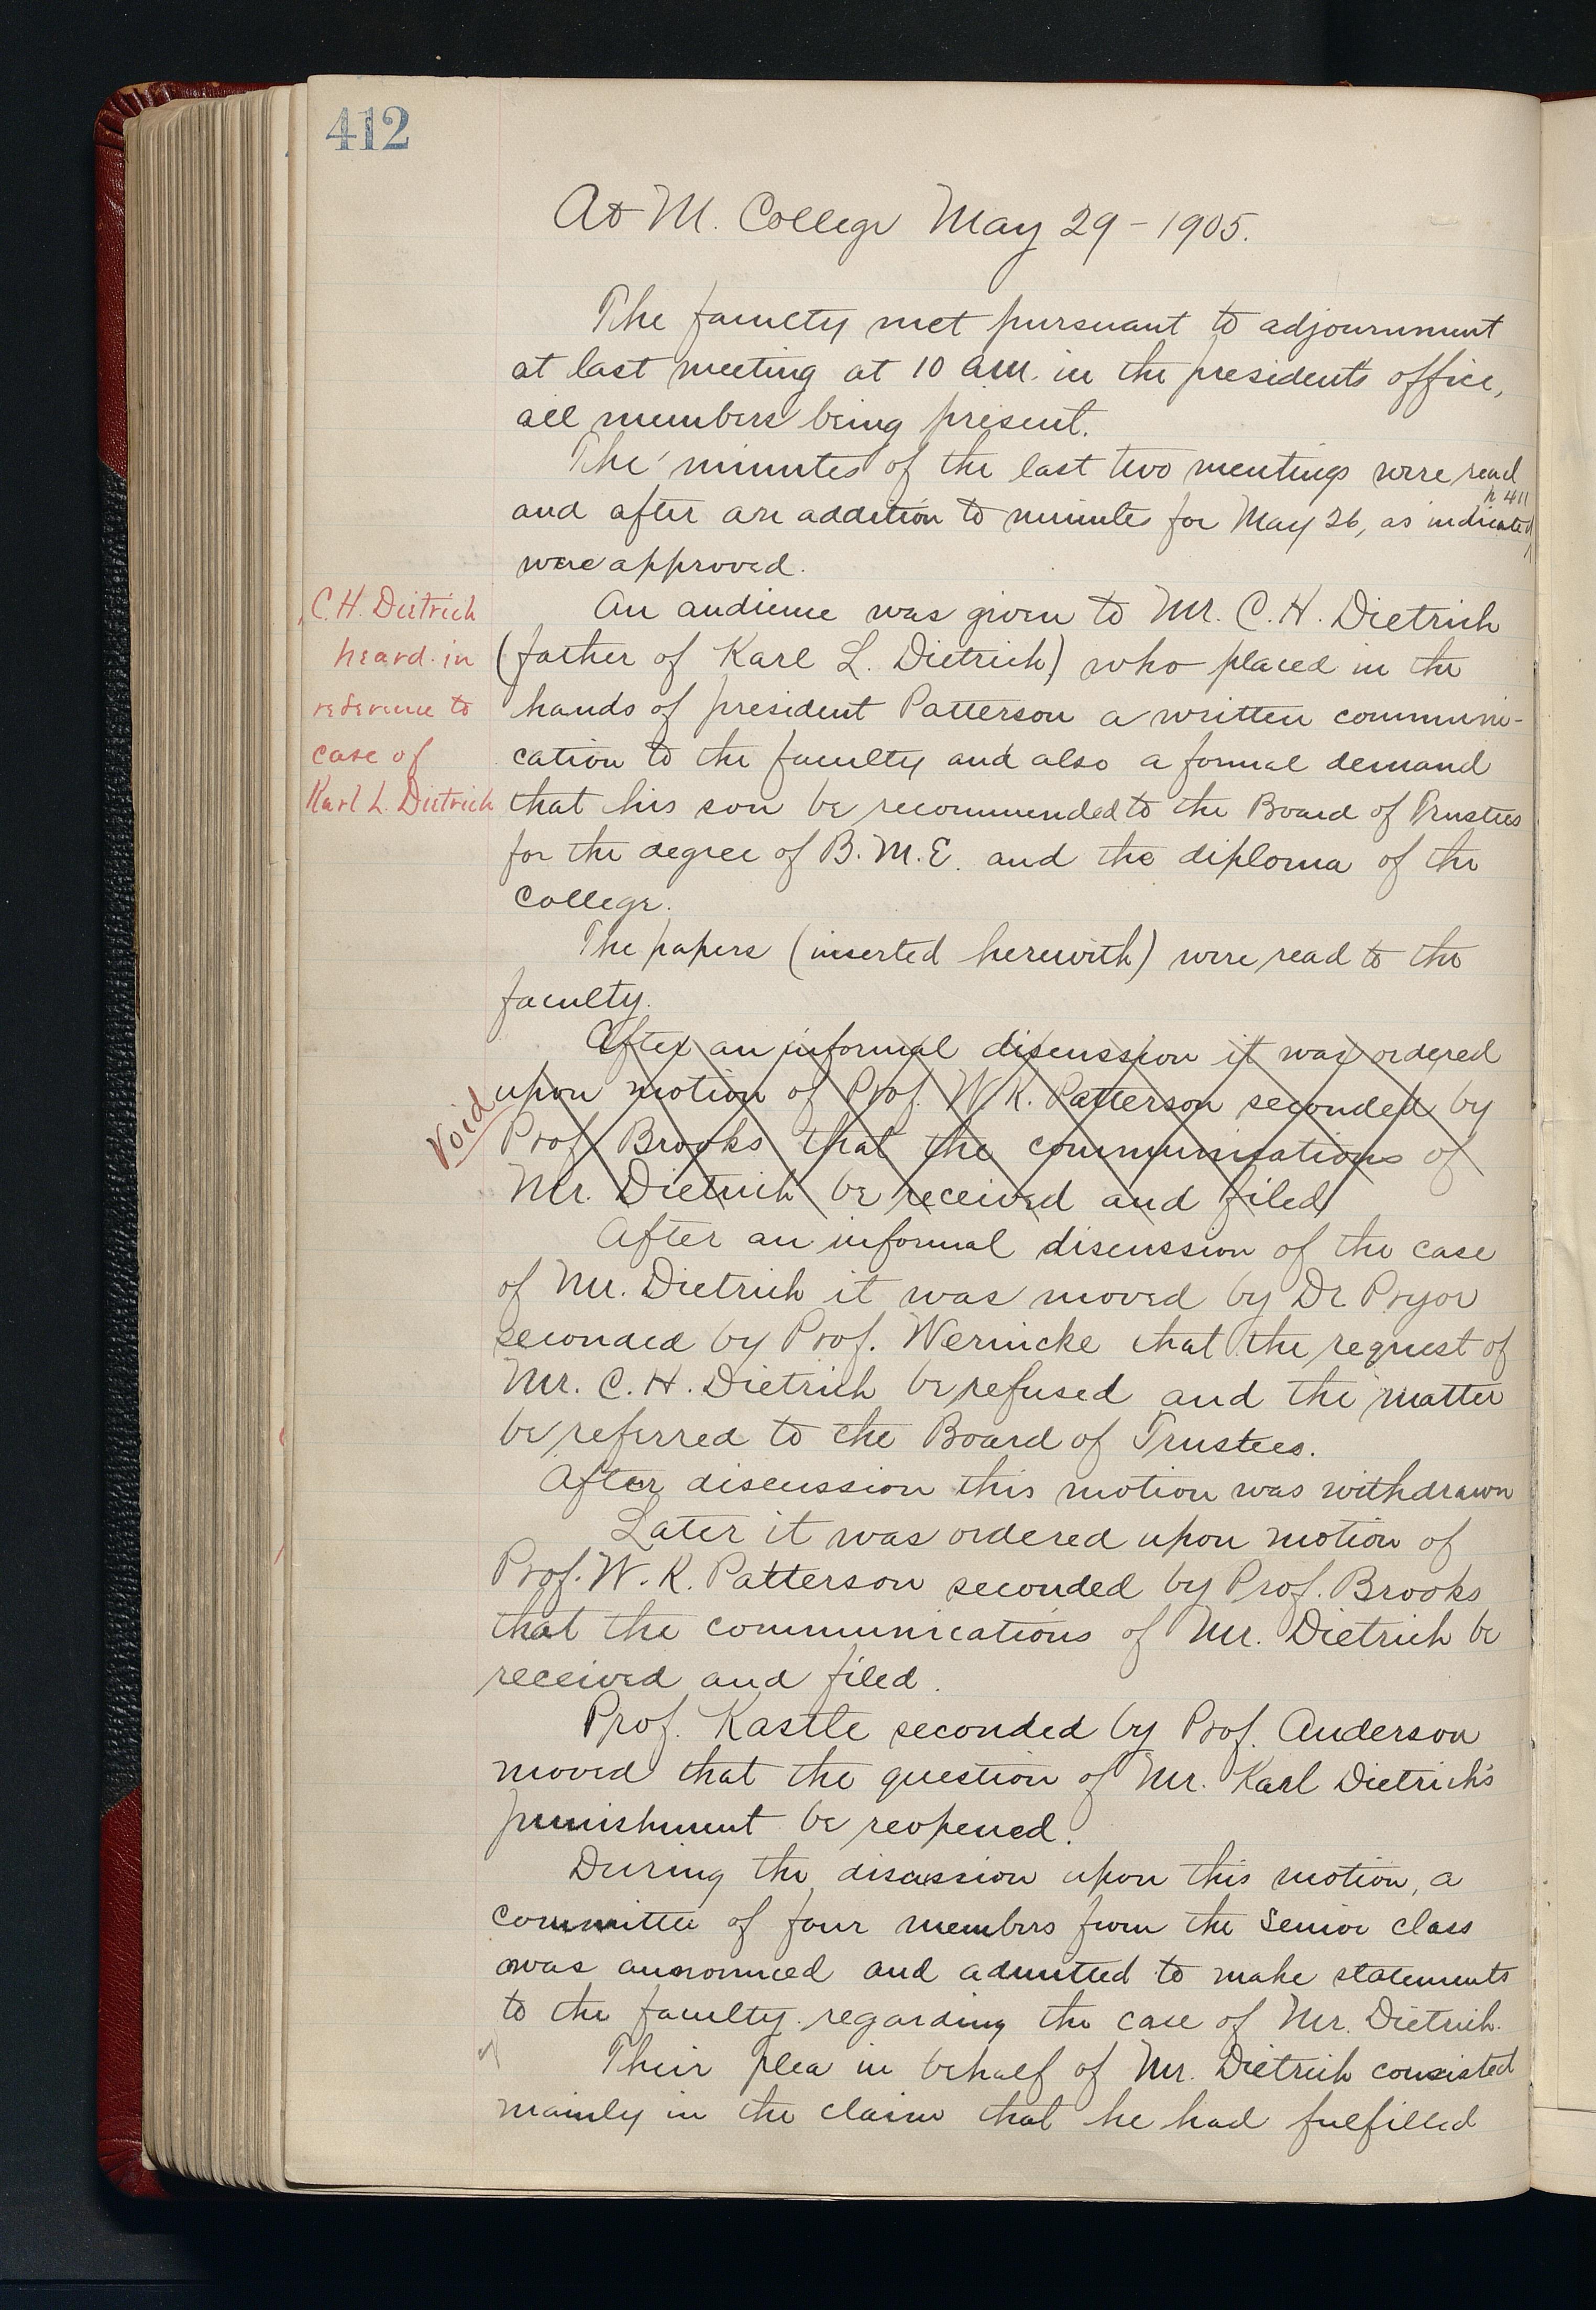 412
A & M. College May 29 - 1905.
The faculty met pursuant to adjournment
at last meeting at 10 a.m. in the presidents office,
all members being present.
The minutes of the last two meetings were read
p 411
and after an addition to minutes for May 26, as indicated
were approved.
C. H. Dietrich
heard in
reference to
case of
Karl L. Dietrich
An audience was given to Mr. C. H. Dietrich
(father of Karl L. Dietrich) who placed in the
hands of president Patterson a written communi-
cation to the faculty and also a formal demand
that his son be recommended to the Board of Trustees
for the degree of B. M. E. and the diploma of the
College.
The papers (inserted herewith) were read to the
faculty.
Void
After an informal discussion it was ordered
upon motion of Prof. W. K. Patterson seconded by
Prof Brooks that the communications of
Mr. Dietrich be received and filed
After an informal discussion of the case
of Mr. Dietrich it was moved by Dr Pryor
seconded by Prof. Wernicke that the request of
Mr. C. H. Dietrich be refused and the matter
be referred to the Board of Trustees.
After discussion this motion was withdrawn
Later it was ordered upon motion of
Prof. W. K. Patterson seconded by Prof. Brooks
that the communications of Mr. Dietrich be
received and filed.
Prof. Kastle seconded by Prof. Anderson
moved that the question of Mr. Karl Dietrich's
punishment be reopened.
During the discussion upon this motion, a
committee of four members from the Senior class
was announced and admitted to make statements
to the faculty regarding the case of Mr. Dietrich.
Their plea in behalf of Mr. Dietrich consisted
mainly in the claim that he had fulfilled